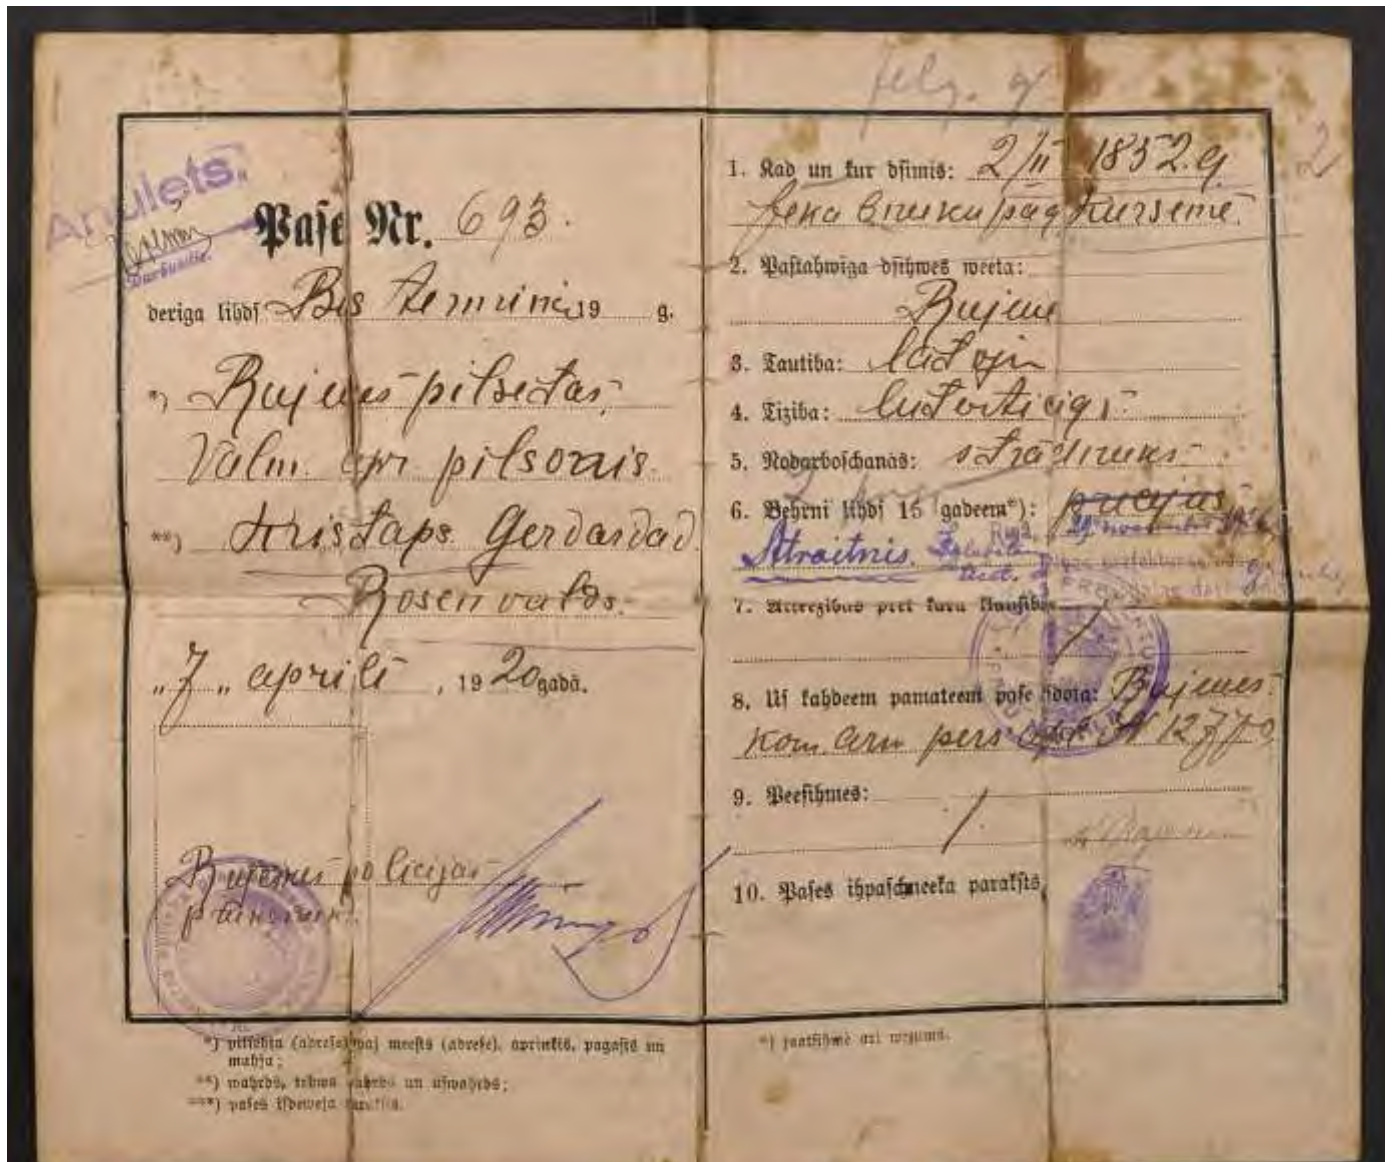 Anulets.
Pase Nr. 693.
deriga lihds Bes termina 19 g.
*) Rujenes pilsetas,
Valm. apr. pilsonis
**) Kristaps Gerda dēl
Rosenvalds.
"7" aprilī, 1920 gadā.
Rujenes policijas
priekšnieks.
*) pilsehta (adrese) waj meests (adrese), aprinkis, pagasts un
mahja;
**) wahrds, tehwa wahrds un uswahrds;
***) pases isdeweja paraksts.
2
1. Kad un kur dsimis: 2/II 1852.g.
pag. Kurseme.
2. Pastahwiga dsihwes weeta:
Rujene
3. Tautiba: latvju
4. Tiziba: luterticigs
5. Nodarboschanās: strādnieks
6. Behrni lihds 15 gadeem*): precejies
Atraitnis.
7. Attezibas pret kara klausibu
8. Us kahdeem pamateem pase isdota: Rujenes
kom. pers. apl. N 12770
9. Peesihmes:
10. Pases ihpaschneeka paraksts
*) jaatsihmē ari wezums.